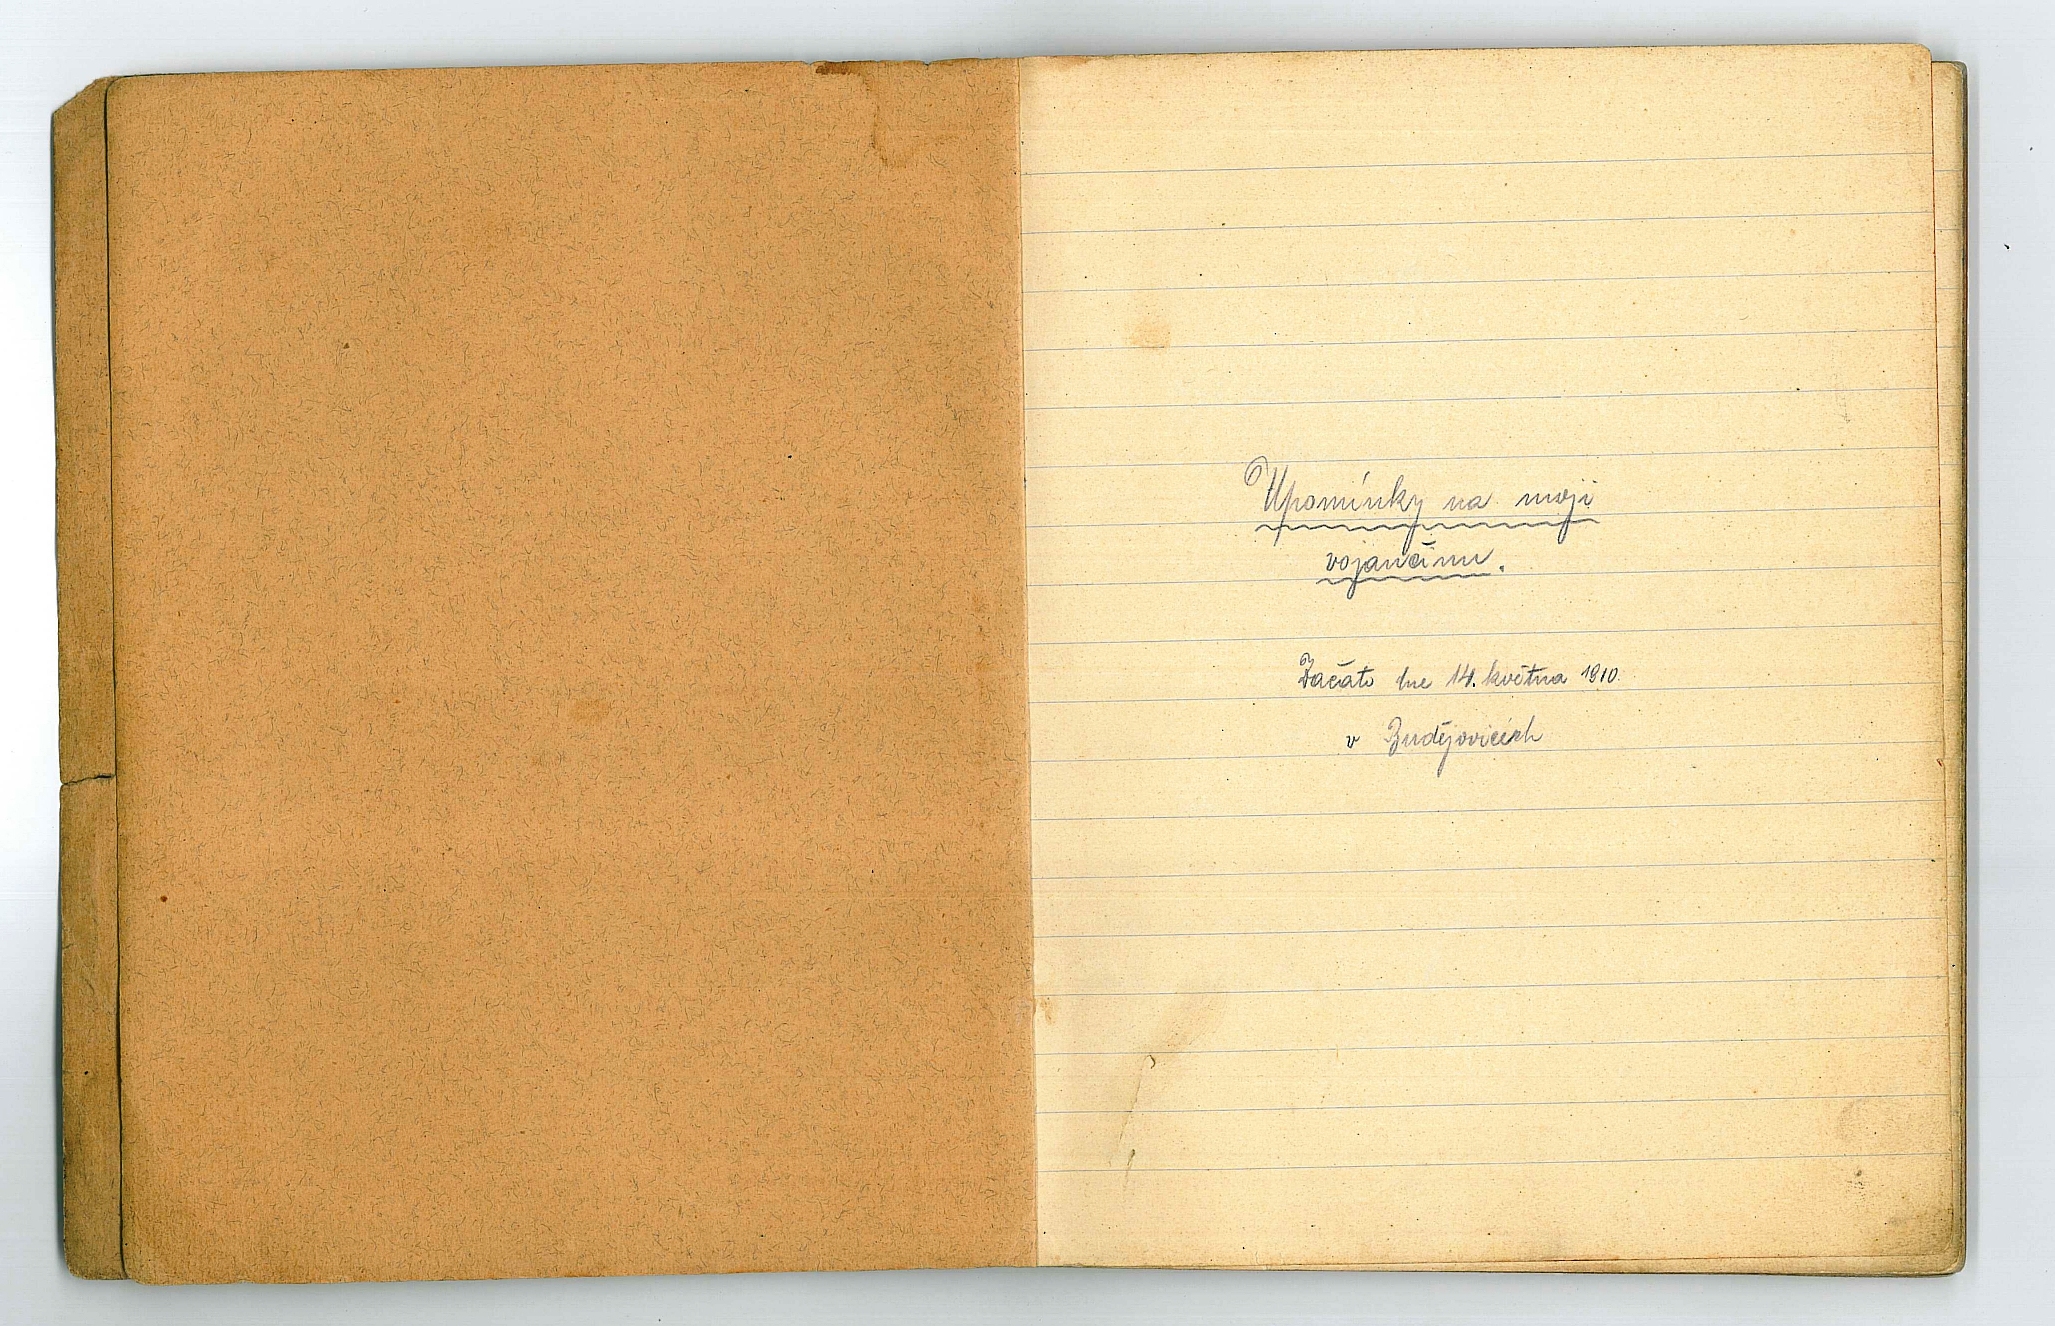 Upomínky na moji
vojančinu.
Začato dne 14. května 1910.
v Budějovicích